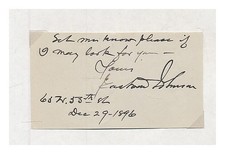 Let me know please if
I may look for you —
Yours
Eastman Johnson
65 W. 55th St
Dec 29-1896